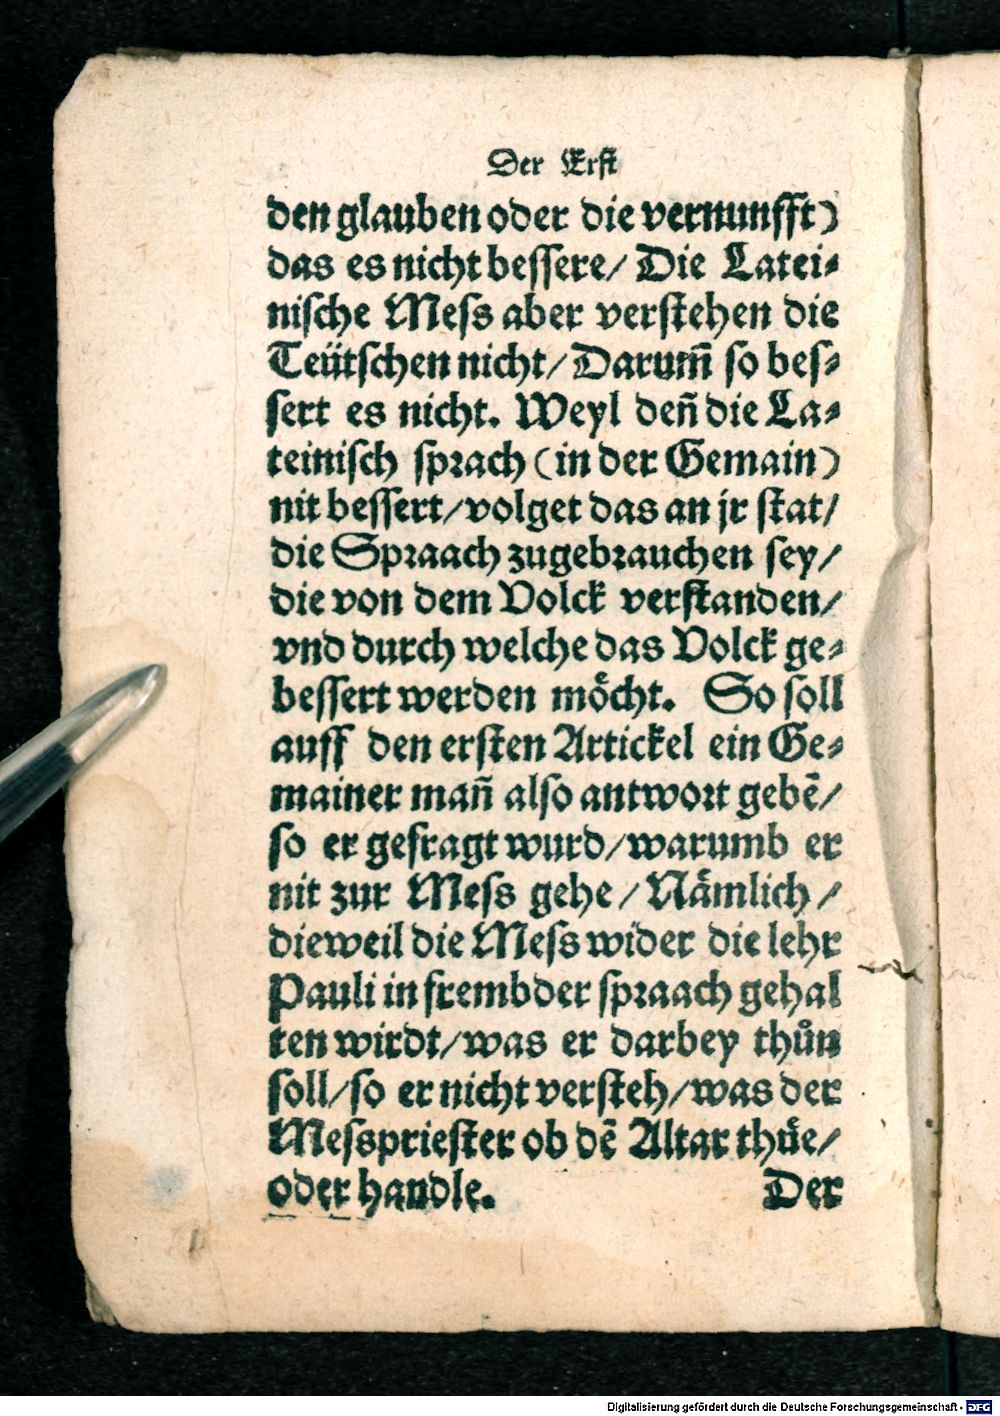 Der Erſt
den glauben oder die vernunfft)
das es nicht beſſere/ Die Latei⸗
niſche Meſs aber verſtehen die
Teütſchen nicht/ Darum̃ ſo beſ⸗
ſert es nicht. Weyl deñ die La⸗
teiniſch ſpꝛach (in der Gemain)
nit beſſert/volget das an jr ſtat/
die Spꝛaach zugebꝛauchen ſey/
die von dem Volck verſtanden/
vnd durch welche das Volck ge⸗
beſſert werden moͤcht. So ſoll
auff den erſten Artickel ein Ge⸗
mainer mañ alſo antwoꝛt gebẽ/
ſo er gefragt wurd/warumb er
nit zur Meſs gehe/Naͤmlich/
dieweil die Meſs wider die lehr
Pauli in frembder ſpꝛaach gehal
ten wirdt/was er darbey thůn
ſoll/ſo er nicht verſteh/was der
Meſsprieſter ob dẽ Altar thuͤe/
oder handle. Der
Digitalisierung gefördert durch die Deutsche Forschungsgemeinschaft - DFG